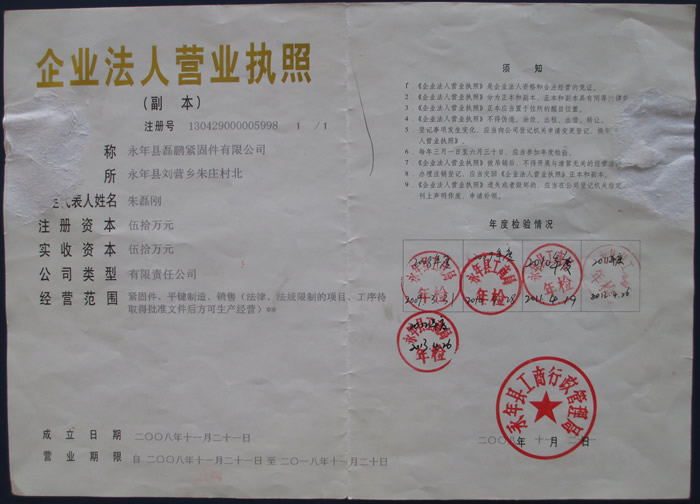 企业法人营业执照
（副 本）
注册号 130429000005998 1 / 1
称 永年县磊鹏紧固件有限公司
所 永年县刘营乡朱庄村北
代表人姓名 朱磊刚
注册资本 伍拾万元
实收资本 伍拾万元
公司类型 有限责任公司
经营范围 紧固件、平键制造、销售（法律、法规限制的项目、工序待
取得批准文件后方可生产经营）**
成立日期 二〇〇八年十一月二十一日
营业期限 自 二〇〇八年十一月二十一日 至 二〇一八年十一月二十日
须 知
1 《企业法人营业执照》是企业法人资格和合法经营的凭证。
2 《企业法人营业执照》分为正本和副本，正本和副本具有同等
3 《企业法人营业执照》正本应当置于住所的醒目位置。
4 《企业法人营业执照》不得伪造、涂改、出租、出借、转让。
5 登记事项发生变化，应当向公司登记机关申请变更登记，换
人营业执照》。
6 每年三月一日至六月三十日，应当参加年度检验。
7 《企业法人营业执照》被吊销后，不得开展与清算无关的经营
8 办理注销登记，应当交回《企业法人营业执照》正本和副本。
9 《企业法人营业执照》遗失或者毁坏的，应当在公司登记机关指定
刊上声明作废，申请补领。
年度检验情况
永年县工商局
年检
永年县工商局
年检
永年县工商局
年检
2011.4.19
2012.4.26
年检
2013.4.26
永年县工商行政管理局
二〇〇八 年 十一 月 日